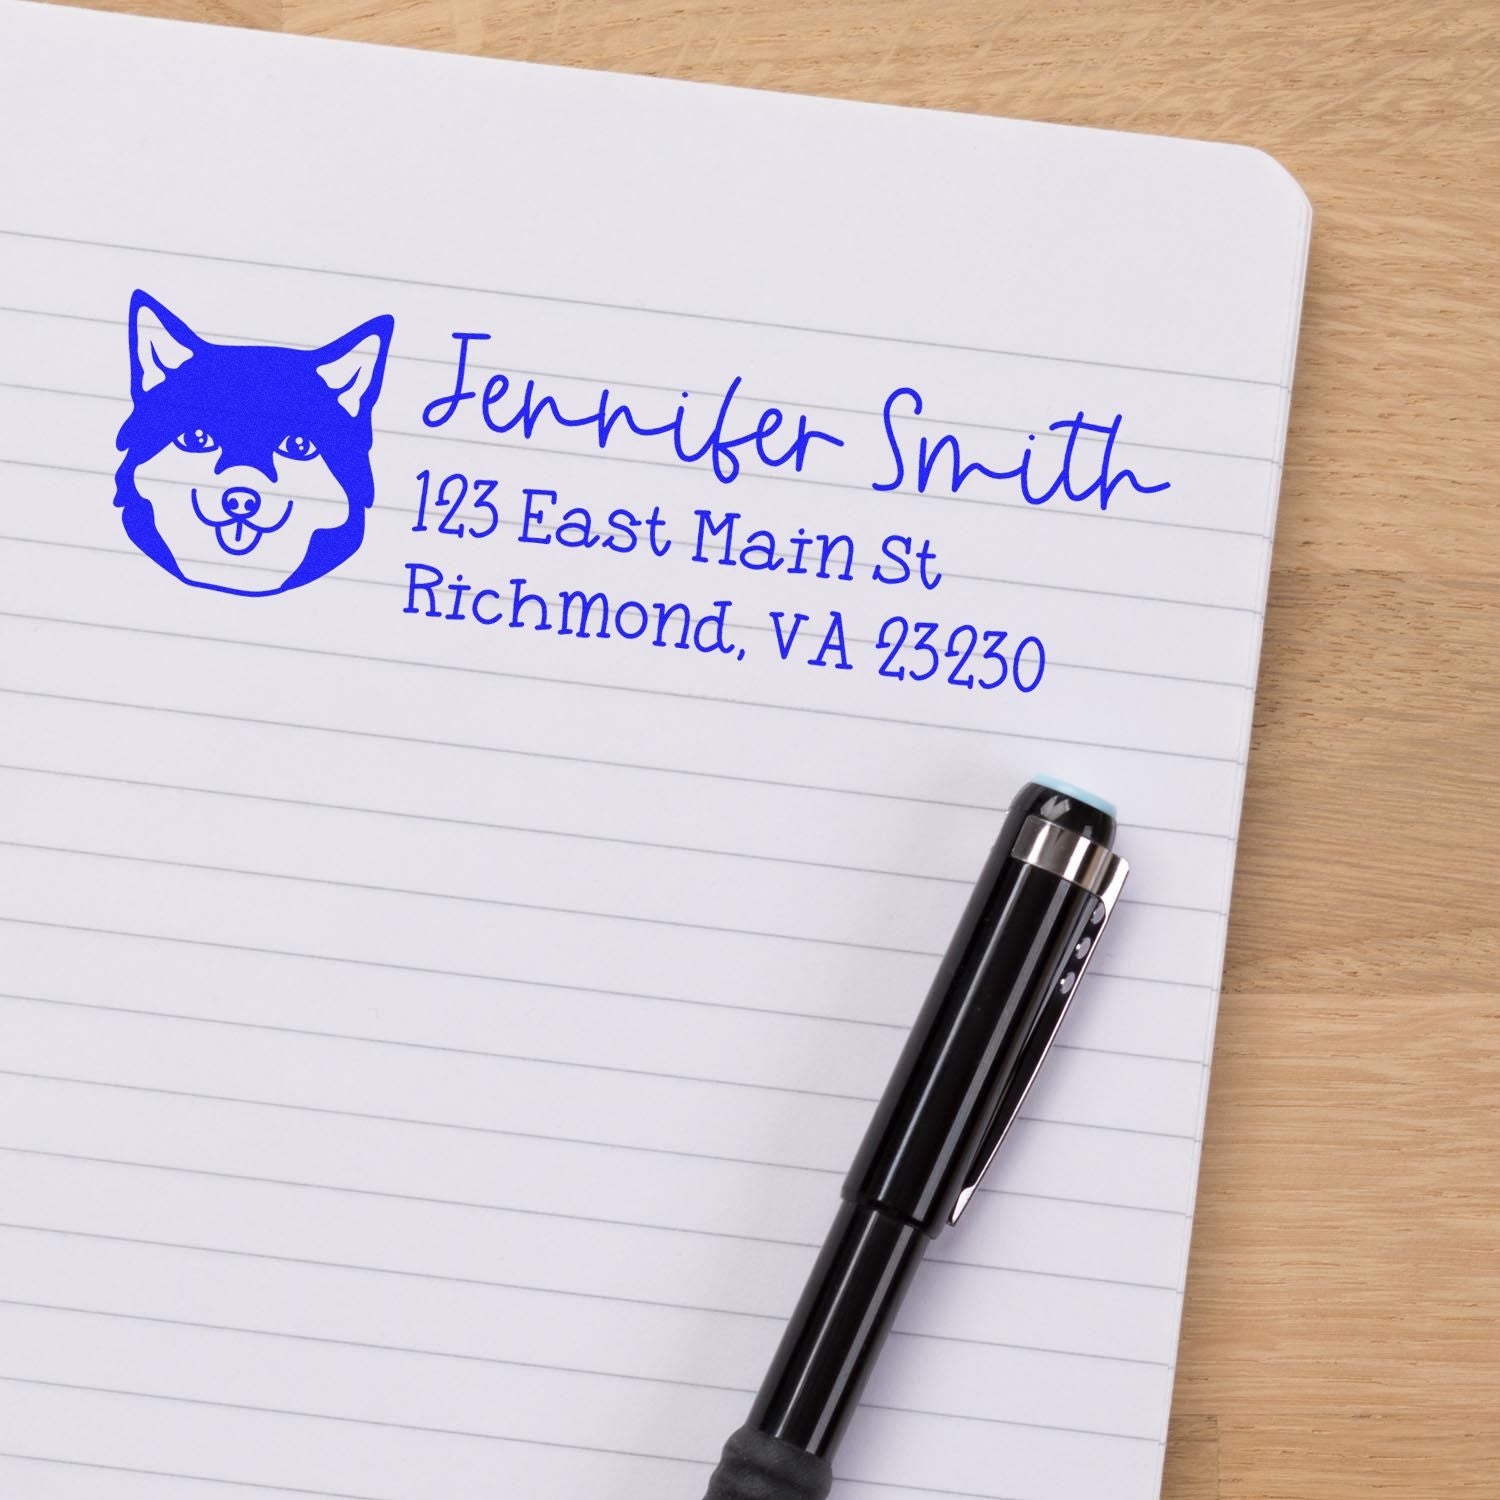 Jennifer Smith
123 East Main St
Richmond, VA 23230